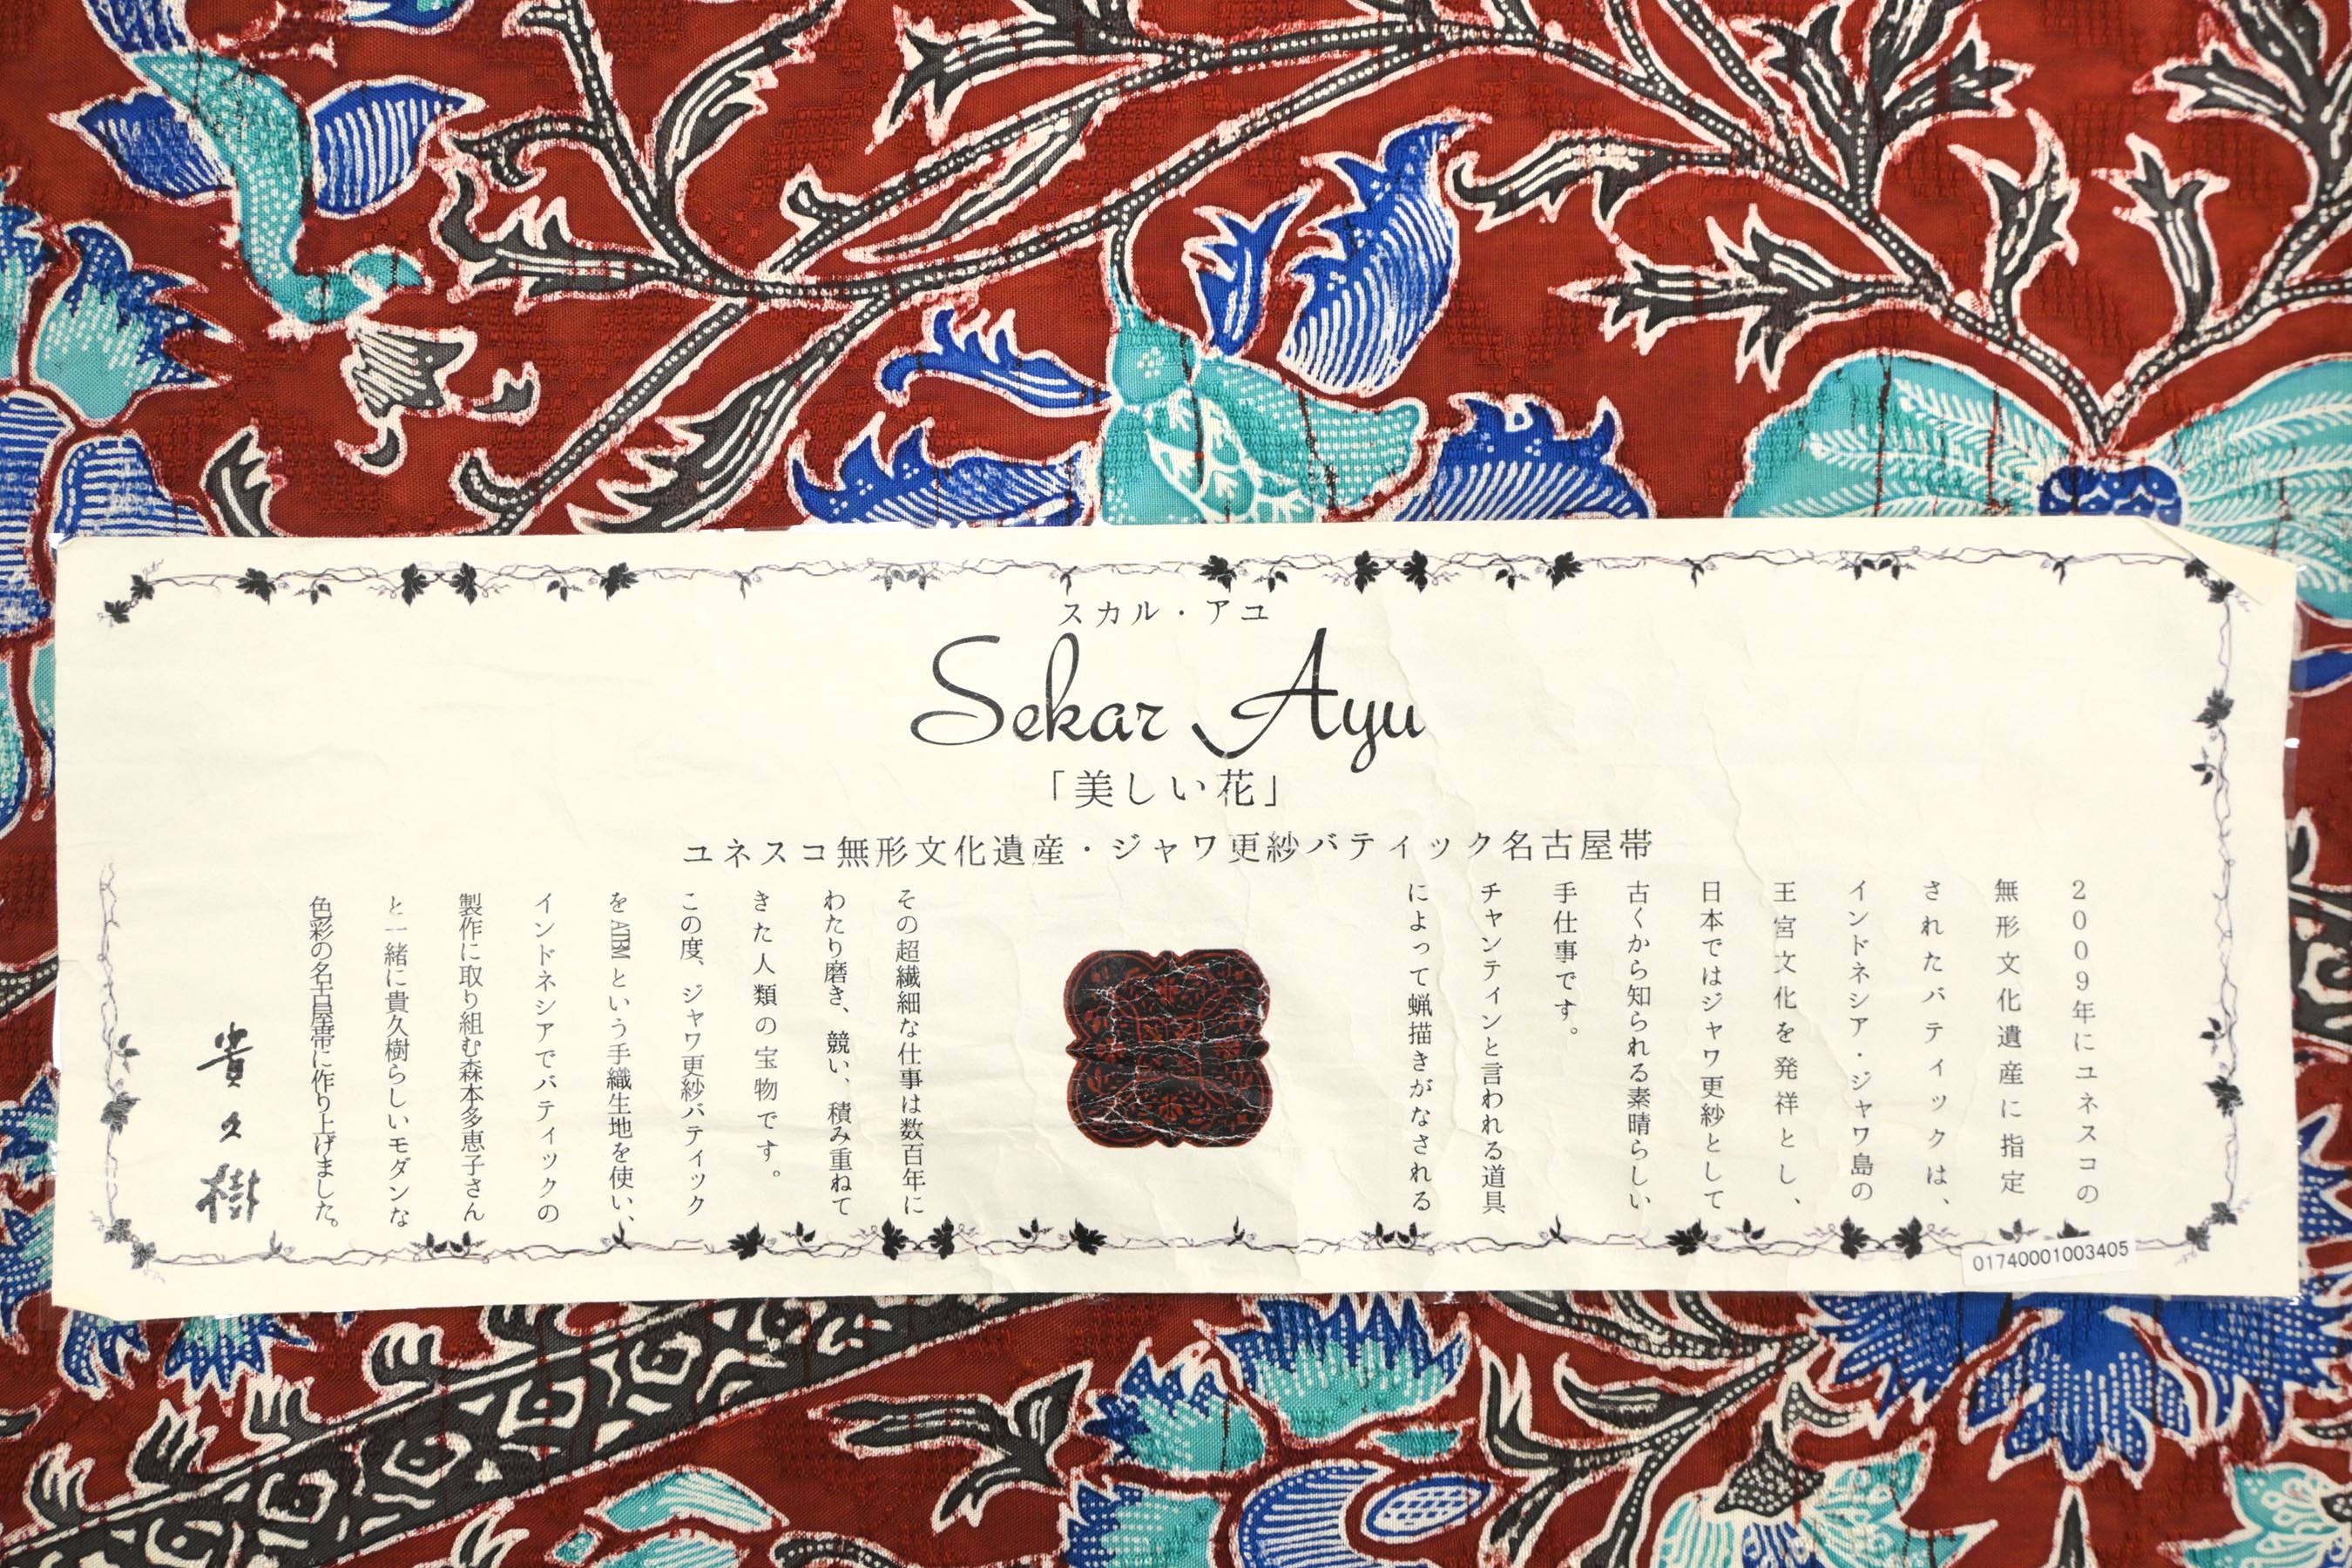 スカル・アユ
Sekar Ayu
「美しい花」
ユネスコ無形文化遺産・ジャワ更紗バティック名古屋帯
2009年にユネスコの
無形文化遺産に指定
されたバティックは、
インドネシア・ジャワ島の
王宮文化を発祥とし、
日本ではジャワ更紗として
古くから知られる素晴らしい
手仕事です。
チャンティンと言われる道具
によって蝋描きがなされる
その超繊細な仕事は数百年に
わたり磨き、競い、積み重ねて
きた人類の宝物です。
この度、ジャワ更紗バティック
をATBMという手織生地を使い、
インドネシアでバティックの
製作に取り組む森本多恵子さん
と一緒に貴久樹らしいモダンな
色彩の名古屋帯に作り上げました。
貴久樹
01740001003405